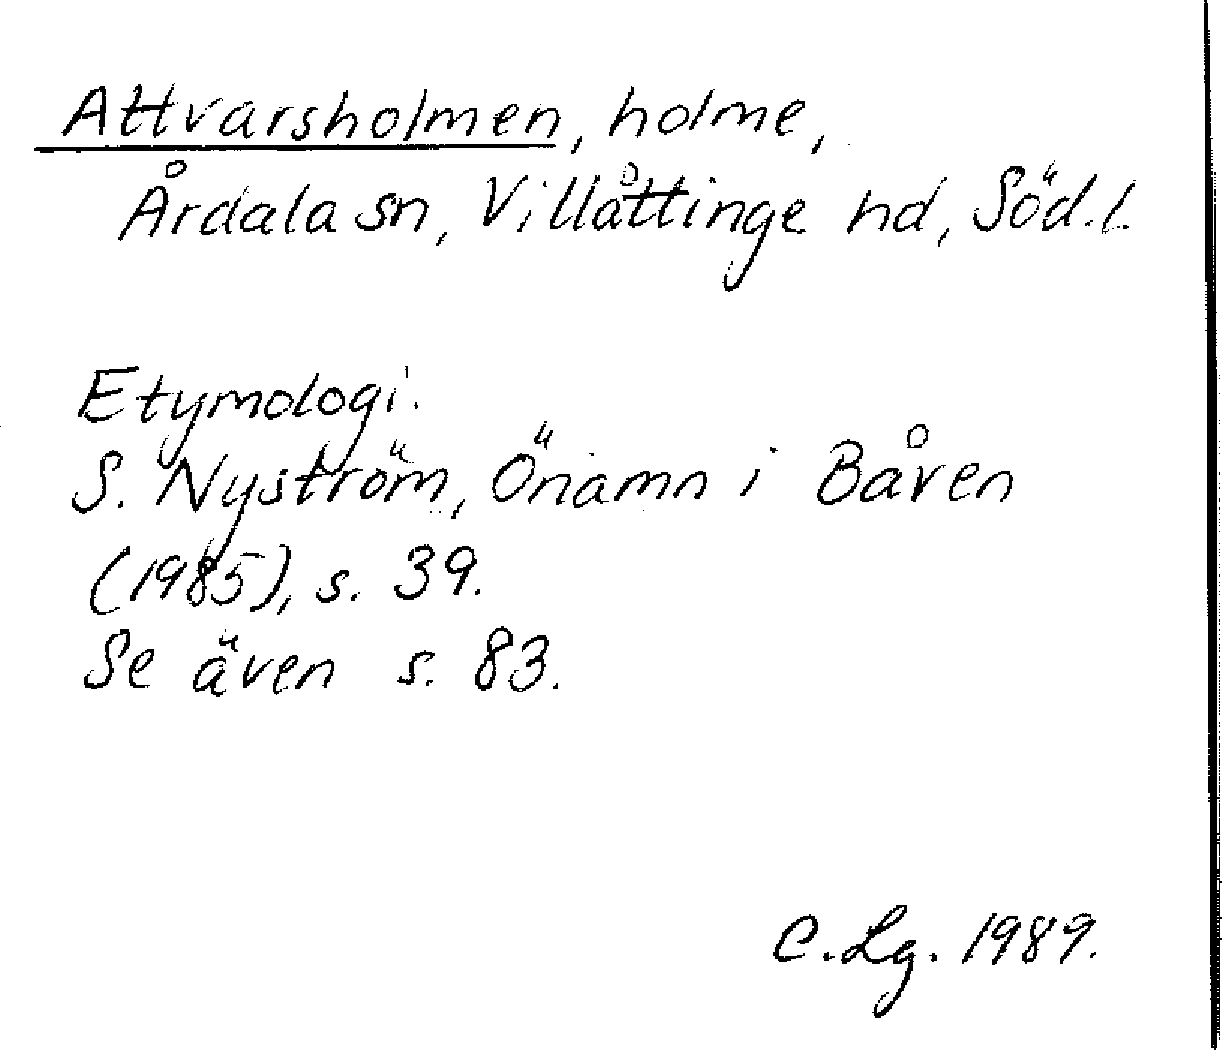 Attvarsholmen, holme,
Årdala sn, Villåttinge hd, Söd.l.
Etymologi.
S. Nyström, Önamn i Båven
(1985), s. 39.
Se även s. 83.
C. Lg. 1989.